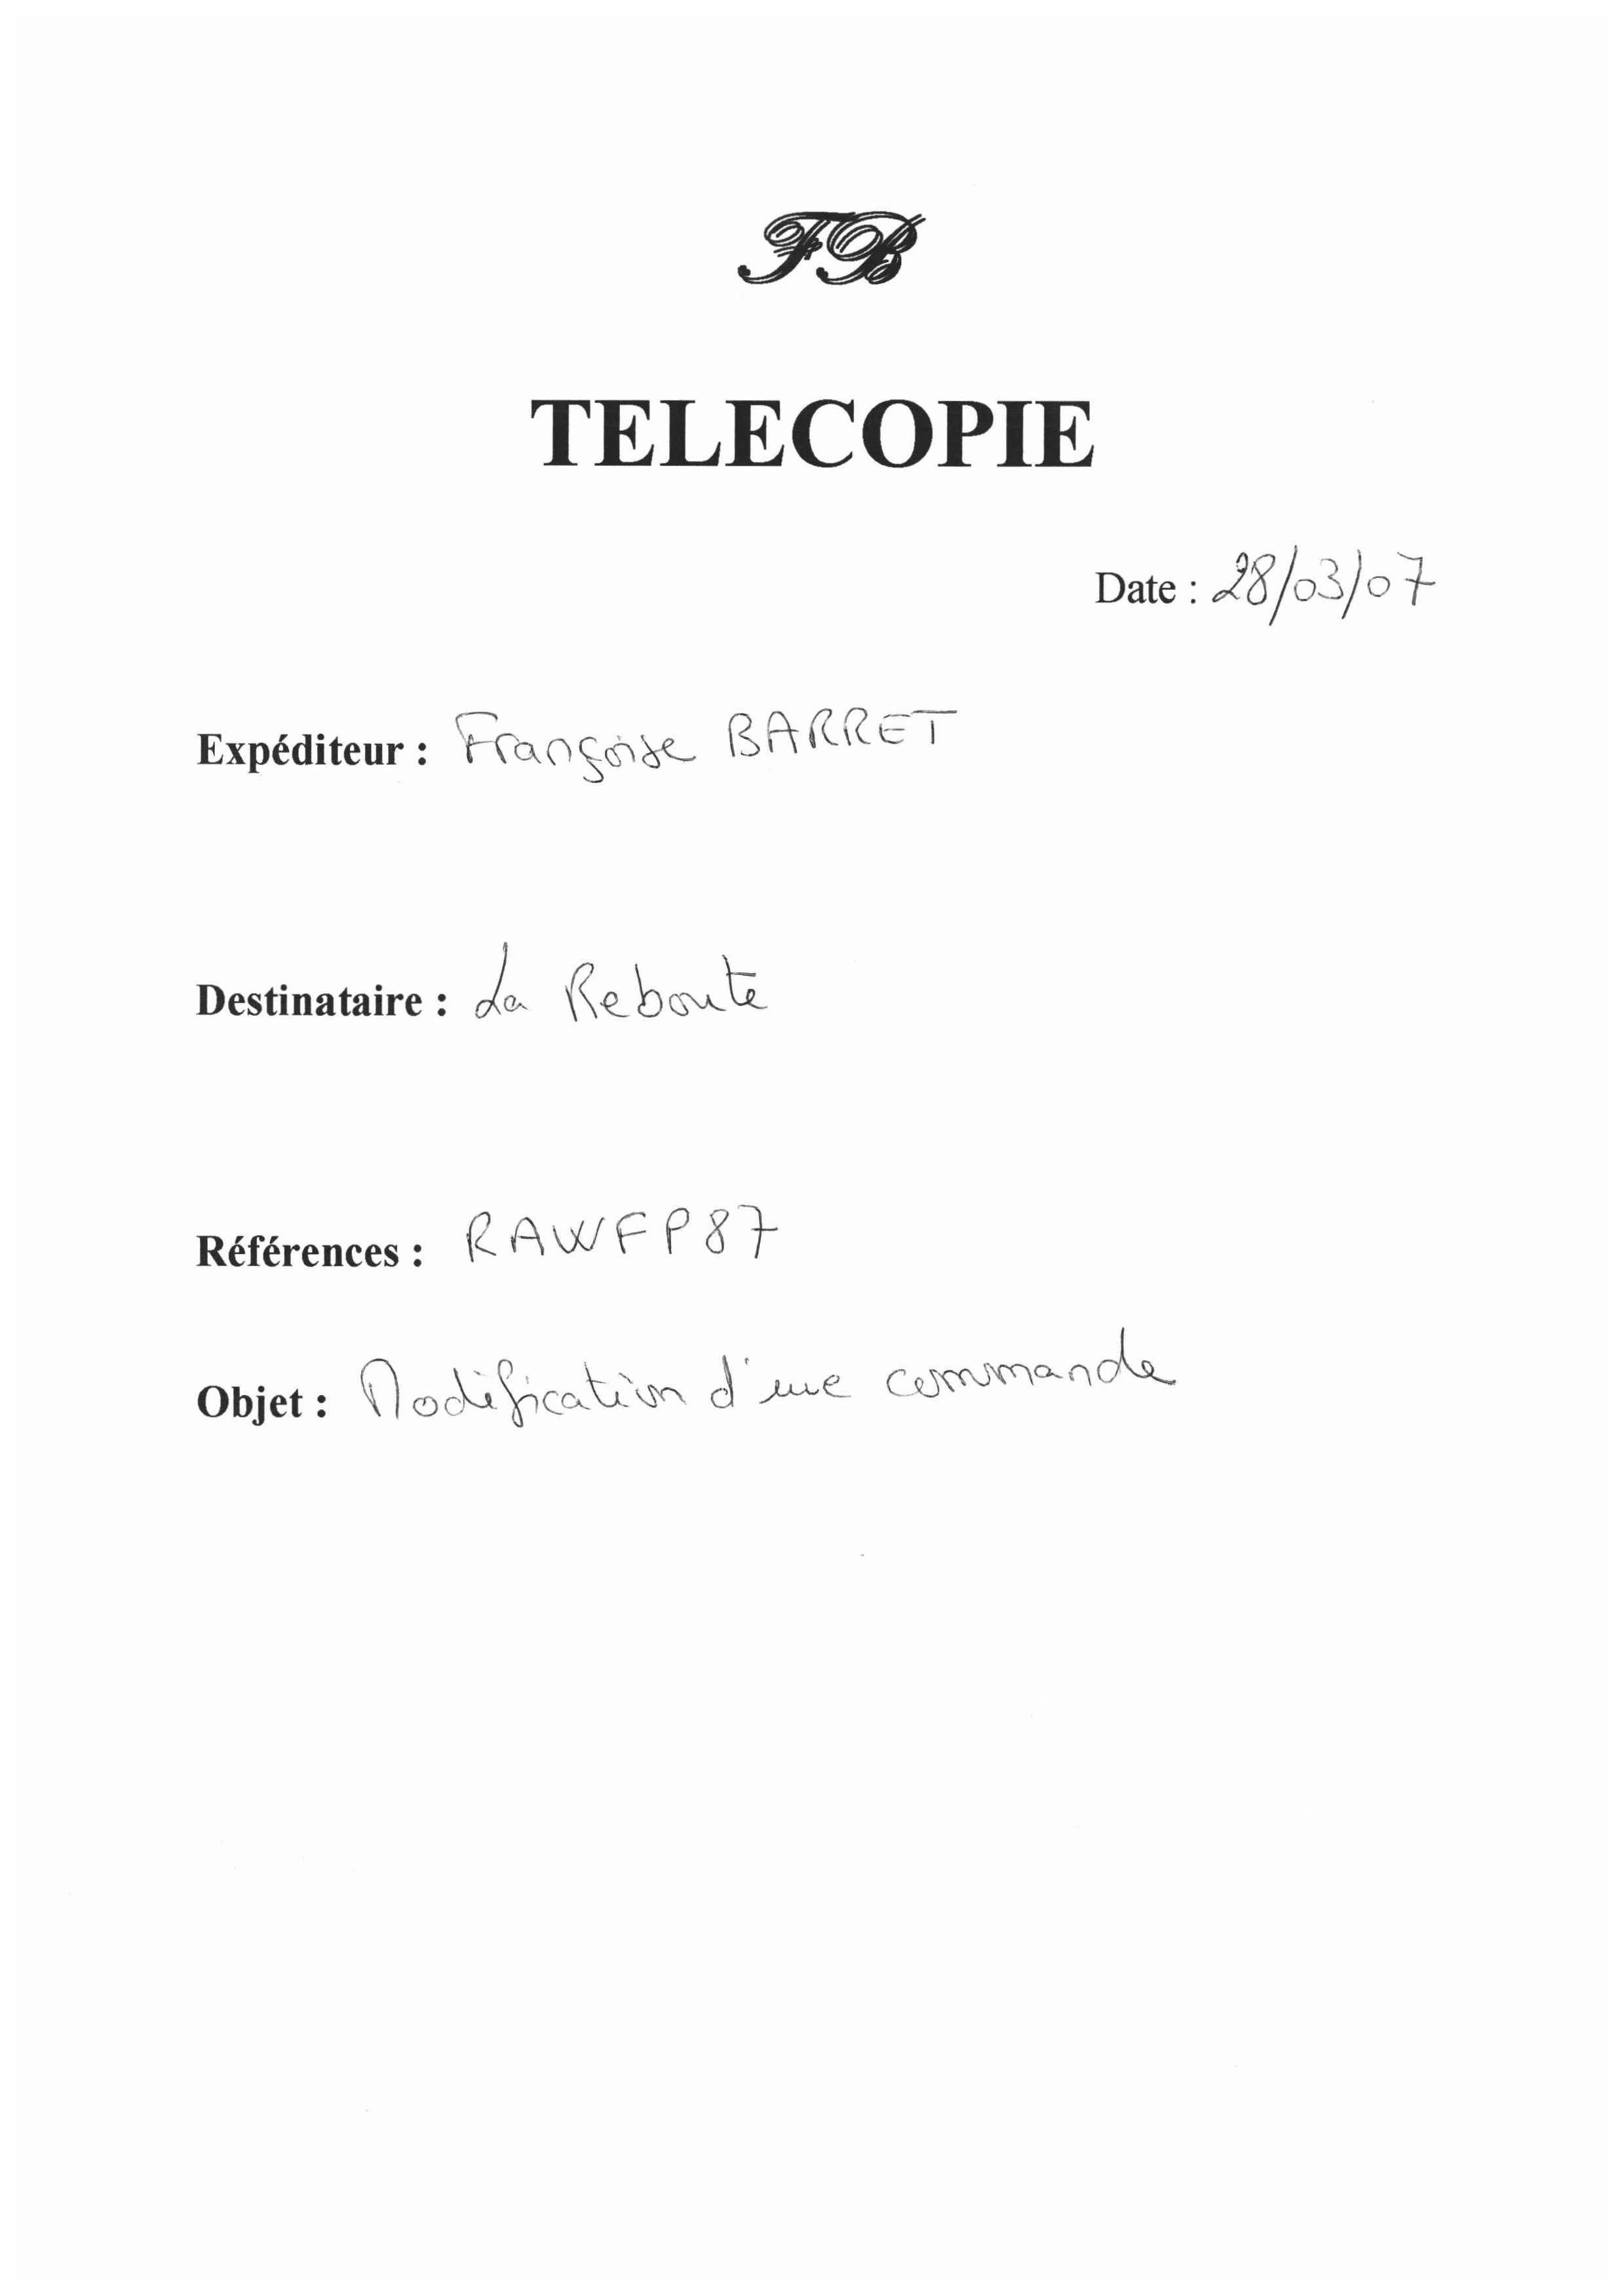 FB
TELECOPIE
Date : 28/03/07
Expéditeur : Françoise BARRET
Destinataire : La Reboute
Références : RAWFP87
Objet : Modification d'une commande